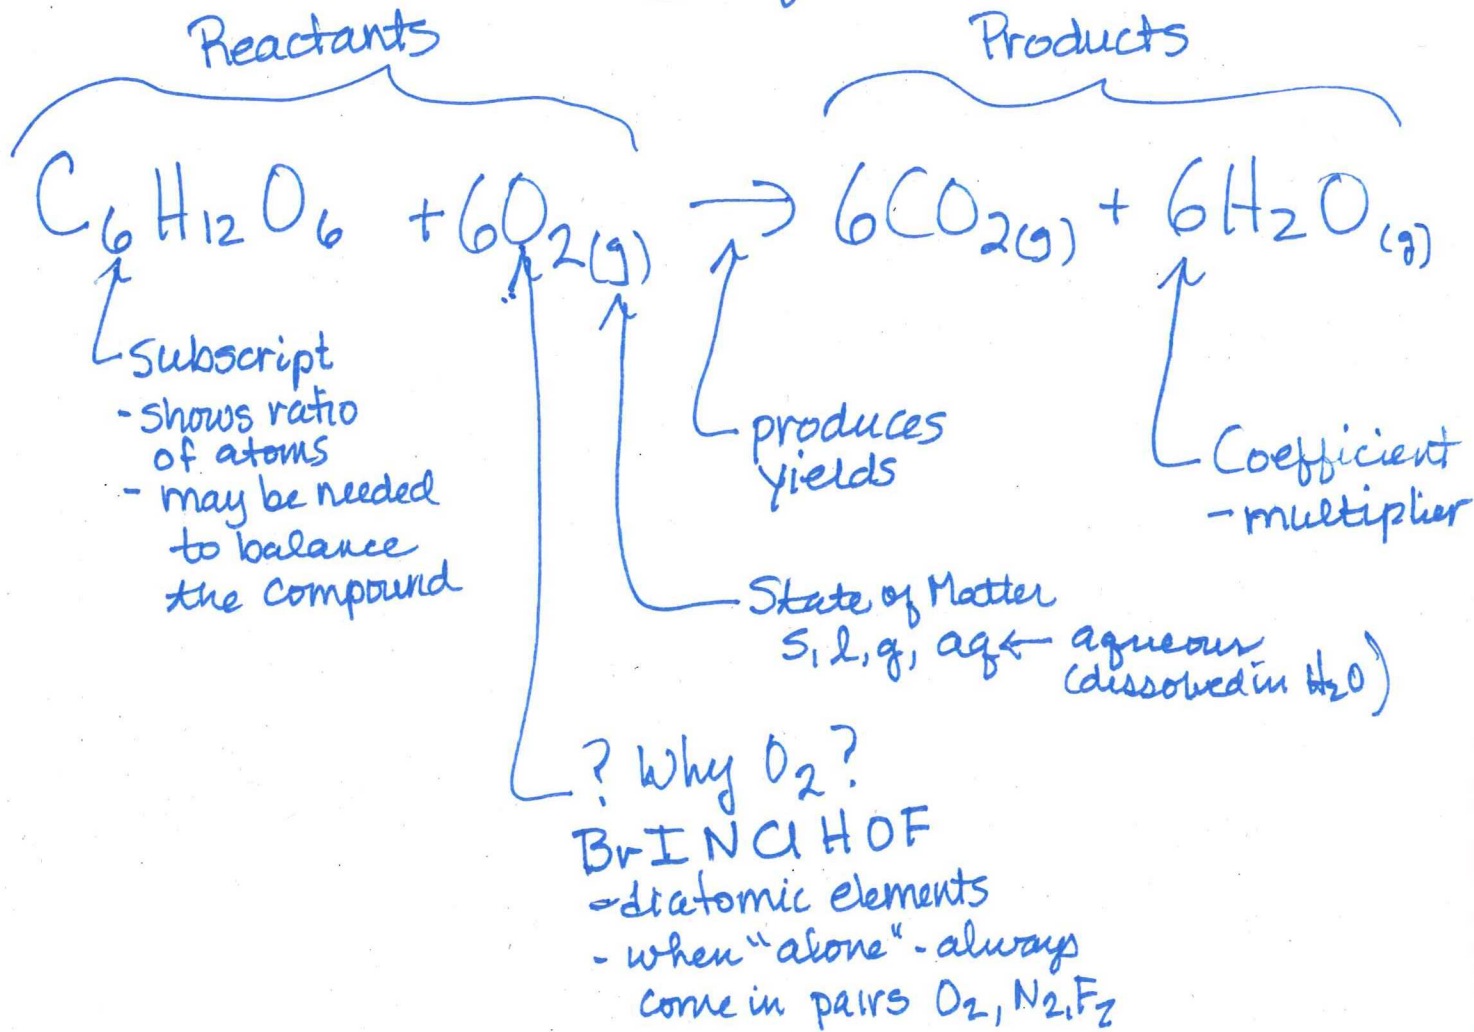 Reactants
Products
C₆H₁₂O₆ + 6O₂(g) → 6CO₂(g) + 6H₂O(g)
Subscript
- shows ratio
of atoms
- may be needed
to balance
the compound
produces
yields
Coefficient
- multiplier
State of Matter
s, l, g, aq ← aqueous
(dissolved in H₂O)
? Why O₂?
Br I N Cl H O F
- diatomic elements
- when "alone" - always
come in pairs O₂, N₂, F₂